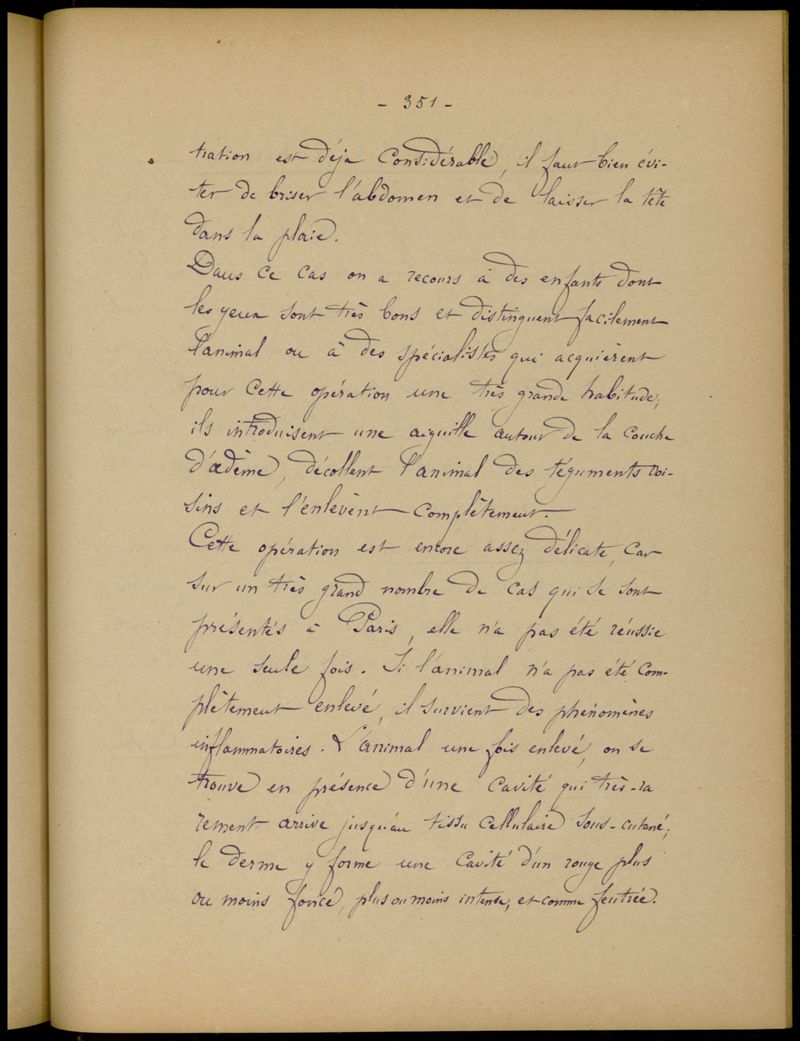 - 351 -
tration est déja Considérable, il faut bien évi-
ter de briser l'abdomen et de laisser la tête
dans la plaie.
Dans ce cas on a recours à des enfants dont
les yeux sont très bons et distinguent facilement
l'animal ou à des spécialistes qui acquièrent
pour cette opération une très grande habitude;
ils introduisent une aiguille autour de la couche
d'œdème, décollent l'animal des téguments voi-
sins et l'enlèvent complètement.
Cette opération est encore assez délicate, car
sur un très grand nombre de cas qui se sont
présentés à Paris, elle n'a pas été réussie
une seule fois. Si l'animal n'a pas été com-
plètement enlevé, il survient des phénomènes
inflammatoires. L'animal une fois enlevé, on se
trouve en présence d'une cavité qui très-ra
rement arrive jusqu'au tissu cellulaire sous-cutané;
le derme y forme une cavité d'un rouge plus
ou moins foncé, plus ou moins intense, et comme feutrée.